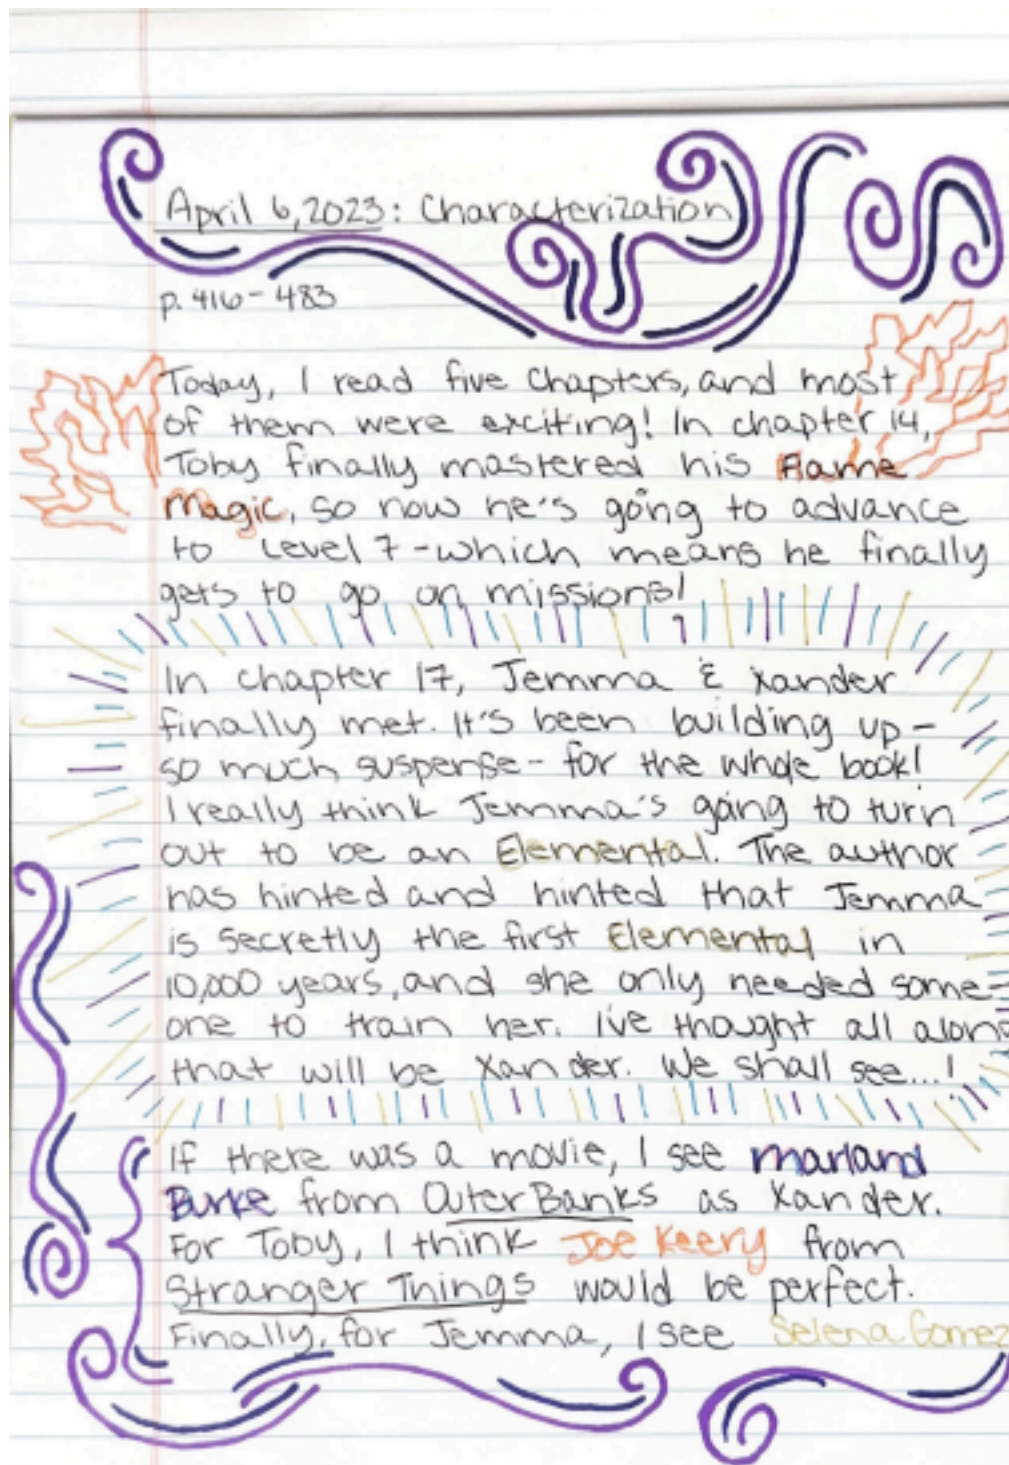 April 6, 2023: Characterization
p. 416-483
Today, I read five chapters, and most
of them were exciting! In chapter 14,
Toby finally mastered his Flame
Magic, so now he's going to advance
to Level 7 - which means he finally
gets to go on missions!
In chapter 17, Jemma & Xander
finally met. It's been building up -
so much suspense - for the whole book!
I really think Jemma's going to turn
out to be an Elemental. The author
has hinted and hinted that Jemma
is secretly the first Elemental in
10,000 years, and she only needed some-
one to train her. I've thought all along
that will be Xander. We shall see...!
If there was a movie, I see Marland
Burke from Outer Banks as Xander.
For Toby, I think Joe Keery from
Stranger Things would be perfect.
Finally, for Jemma, I see Selena Gomez